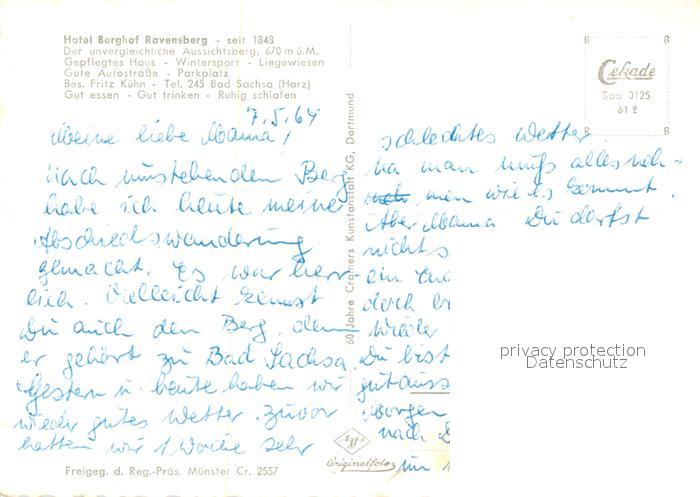 Hotel Berghof Ravensberg - seit 1848
Der unvergleichliche Aussichtsberg, 670 m ü.M.
Gepflegtes Haus - Wintersport - Liegewiesen
Gute Autostraße - Parkplatz
Bes. Fritz Kühn - Tel. 245 Bad Sachsa (Harz)
Gut essen - Gut trinken - Ruhig schlafen
7.5.64
Meine liebe Mama!
Nach umstehenden Berg
habe ich heute meine
Abschiedswanderung
gemacht. Es war herr-
lich. Vielleicht kennst
Du auch den Berg, denn
er gehört zu Bad Sachsa.
Gestern u. heute haben wir
wieder gutes Wetter. Zuvor
hatten wir 1 Woche sehr
Freigeg. d. Reg.-Präs. Münster Cr. 2557
60 Jahre Cramers Kunstanstalt KG, Dortmund
Originalfoto
Cekade
Sao 0125
61 2
schlechtes Wetter.
Na man muß alles neh-
men wie es kommt.
Aber Mama Du darfst
nichts
ein
doch
wieder
Du bist
gut auss
Morgen
nach
im
privacy protection
Datenschutz